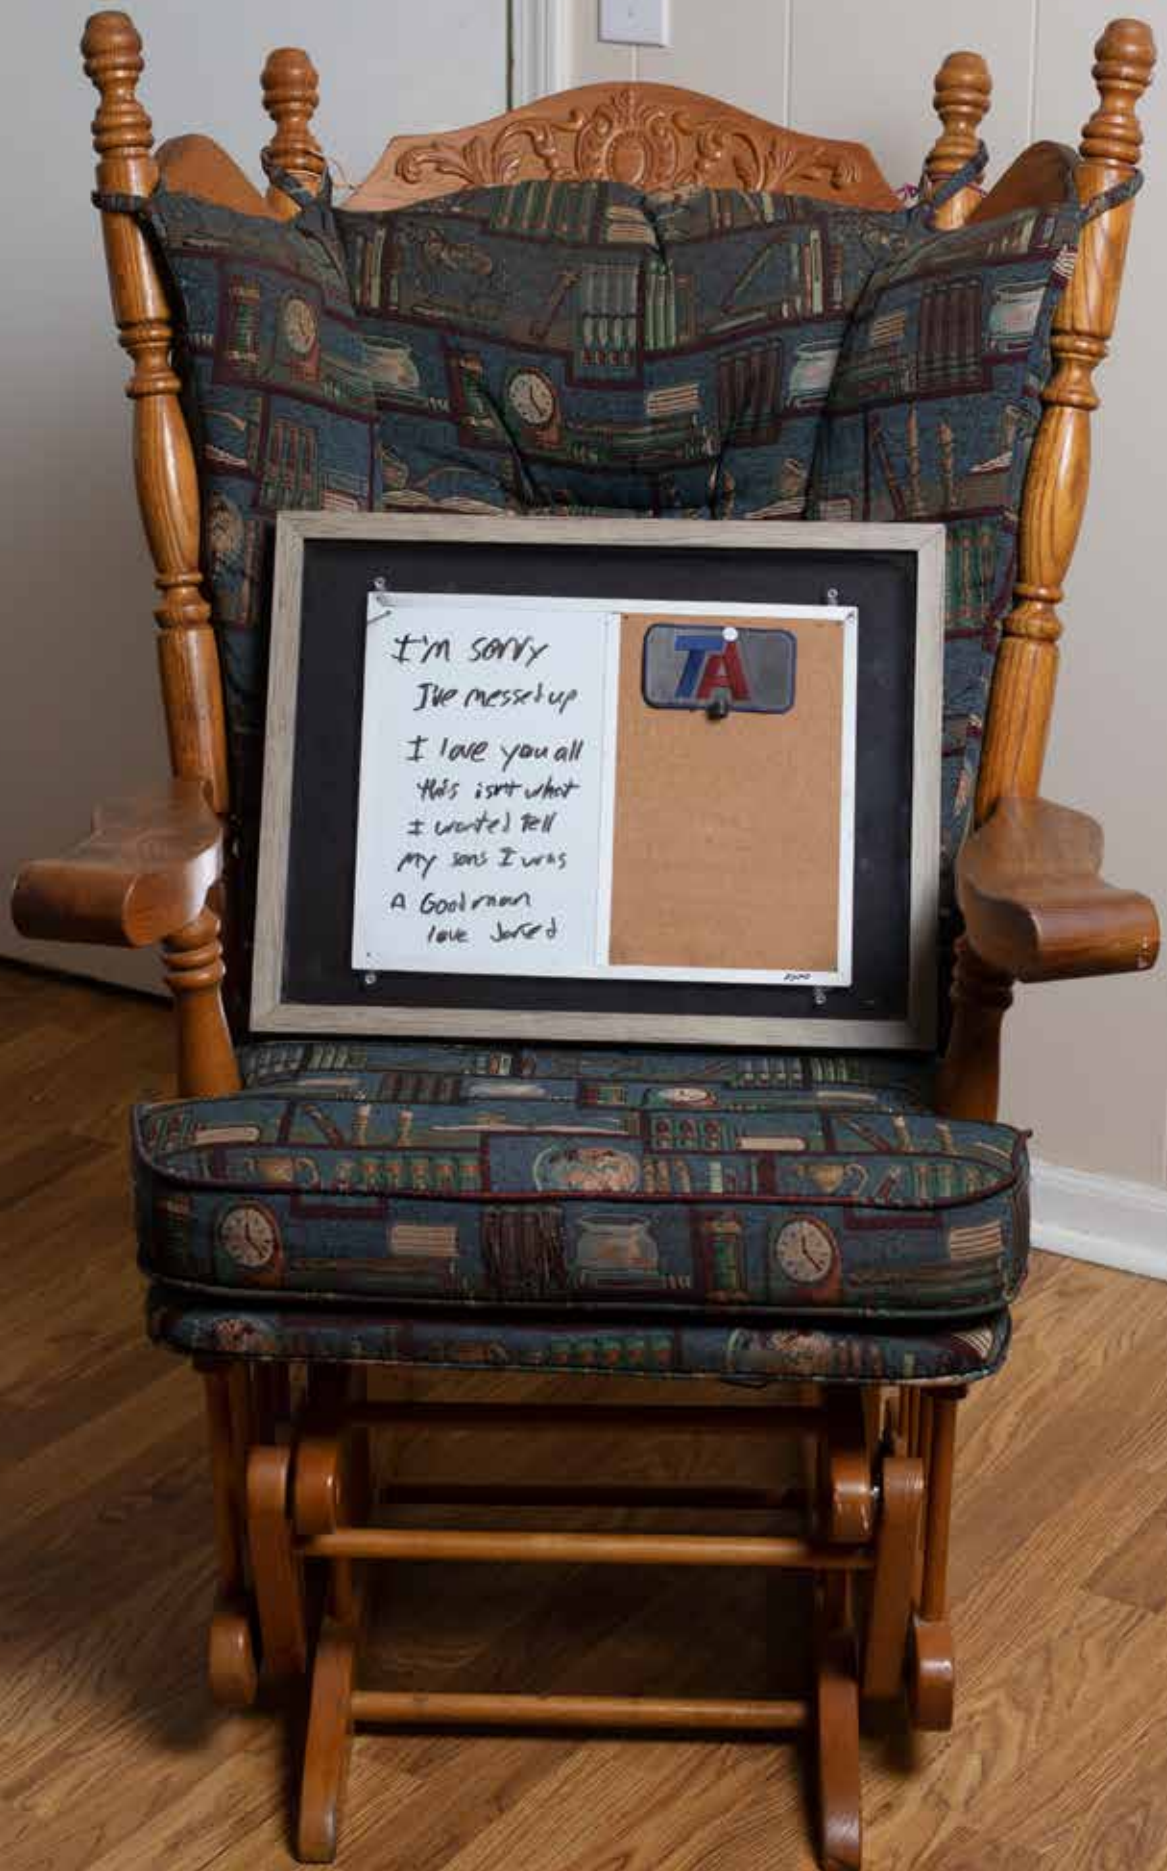 I'm sorry
I've messed up
I love you all
this isn't what
I wanted tell
my sons I was
A Good man
love Jared
TA